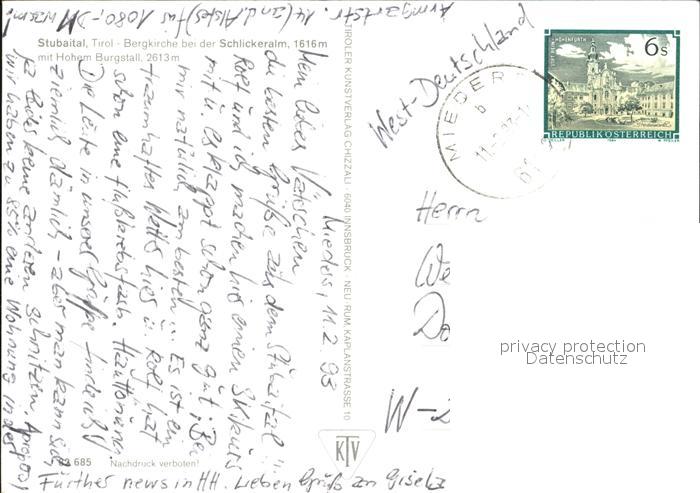 Stubaital, Tirol - Bergkirche bei der Schlickeralm, 1616 m
mit Hohem Burgstall, 2613 m
Mieders, 11.2.93
Mein liebes Väterchen
die besten Grüße aus dem Stubaital!!
Rolf und ich machen hier einen Skikurs
mit u. es klappt schon ganz gut! Bei
mir natürlich am besten!! Es ist ein
traumhaftes Wetter hier u. Rolf hat
schon eine
Die Leute in unserer Gruppe finde ich
ziemlich dämlich - aber man kann sich
ja leider keine anderen schnitzen. Apropos,
wir haben zu 85% eine Wohnung in der
Armgartstr. 14 (an d. Alster) für 1080,- DM warm!
Further news in HH. Lieben Gruß an Gisela
685
Nachdruck verboten!
TIROLER KUNSTVERLAG CHIZZALI · 6040 INNSBRUCK · NEU RUM, KAPLANSTRASSE 10
KTV
West-Deutschland
MIEDER
b
6 S
STIFT REIN-HOHENFURTH
REPUBLIK ÖSTERREICH
Herrn
We
Do
W-2
privacy protection
Datenschutz